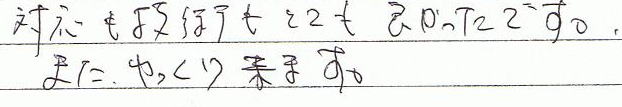 対応も接客もとてもよかったです。
また、ゆっくり来ます。